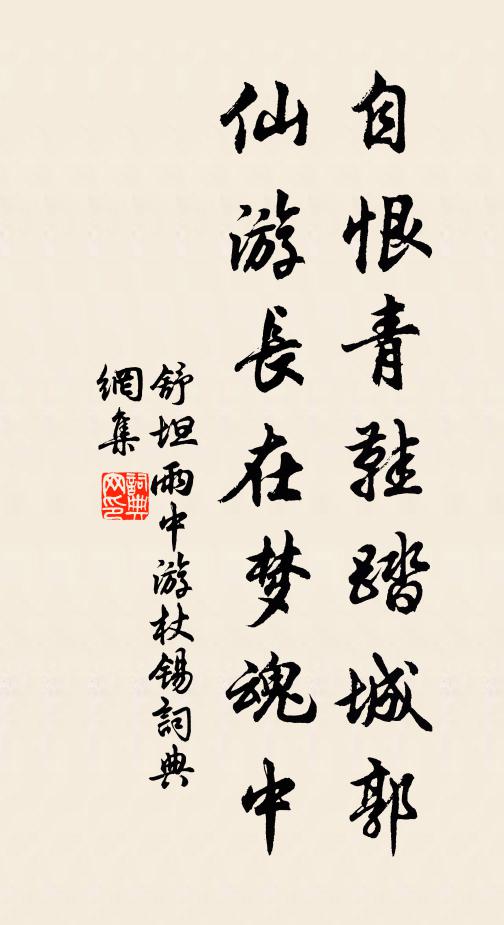 自恨青鞋踏城郭
仙游長在梦魂中
舒坦雨中游杖锡詞典
網集
詞典
网印